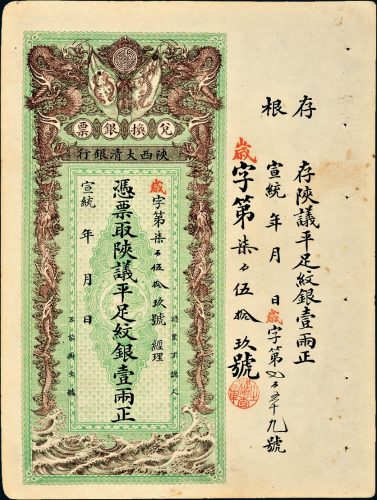 存根
存陝議平足紋銀壹兩正
宣統 年 月 日 歲字第
九號
歲字第柒百伍拾玖號
兌換銀票
陝西大清銀行
歲字第柒百伍拾玖號 經理
憑票取陝議平足紋銀壹兩正
宣統 年 月 日
認票不認人